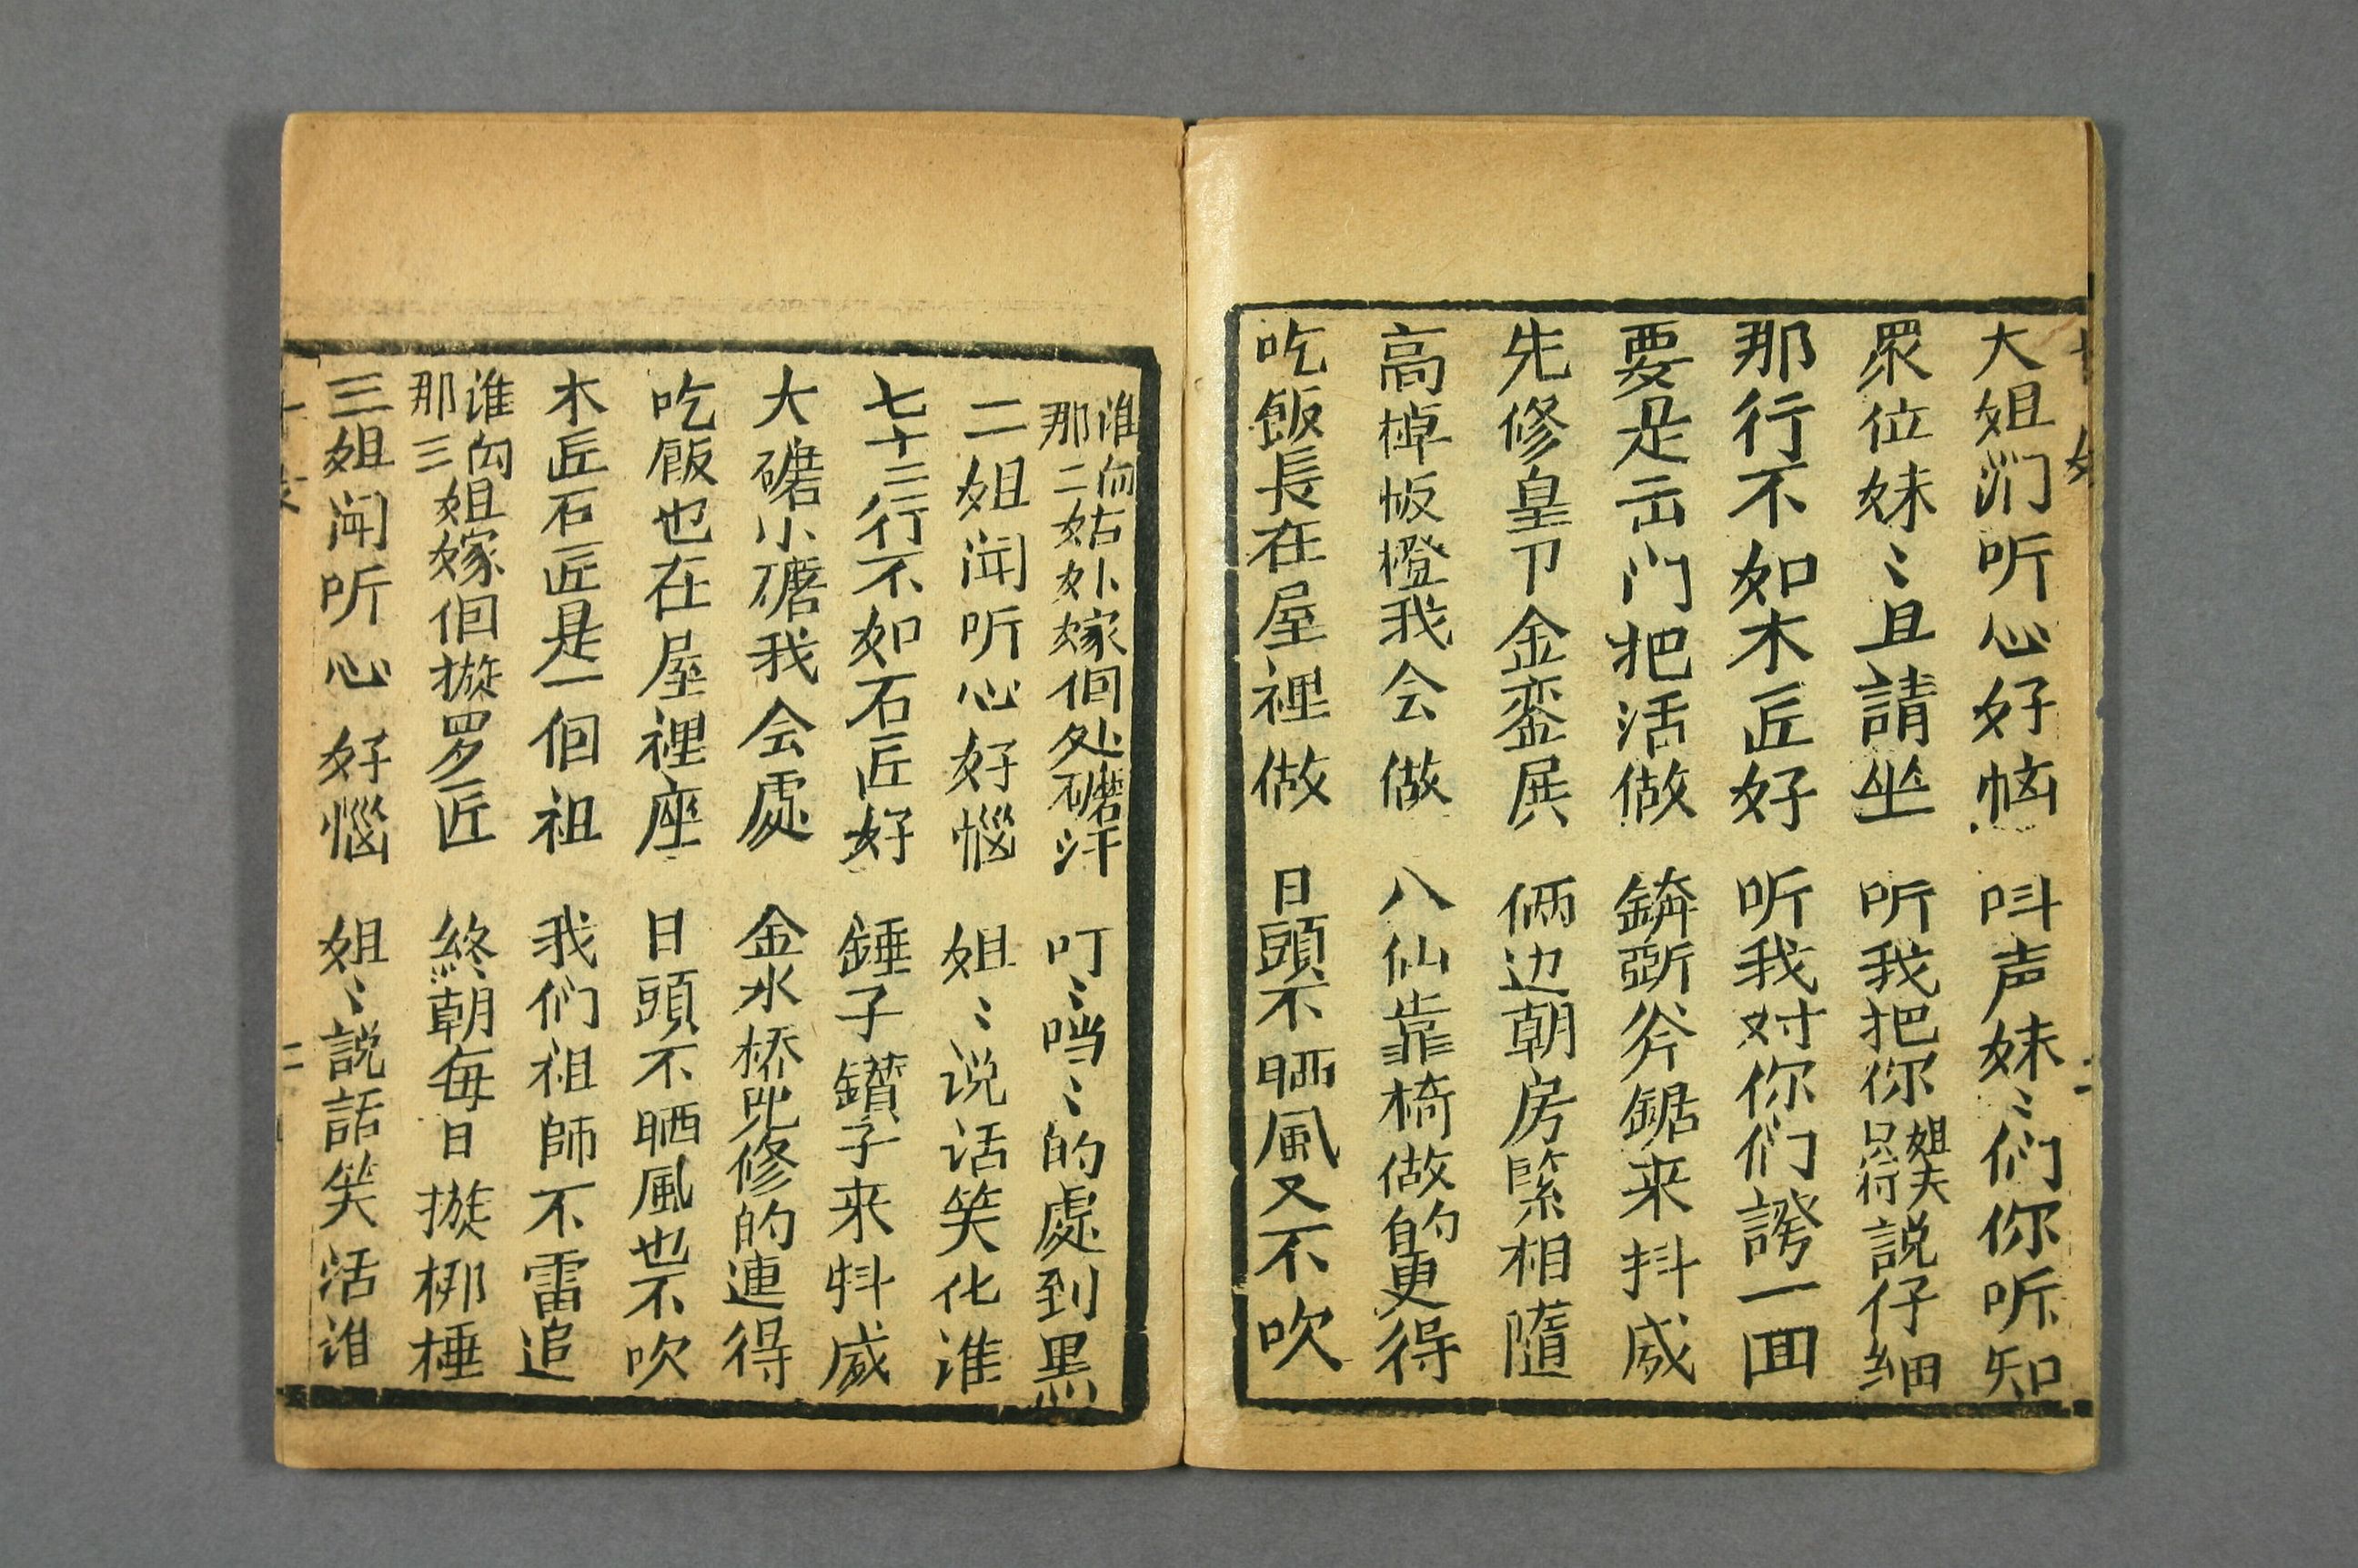 大姐们听心好恼 叫声妹〻们你听知
眾位妹〻且請坐 听我把你姐夫只行說仔细
那行不如木匠好 听我对你们誇一面
要是出门把活做 錛斲斧鋸来抖威
先修皇卩金銮展 俩边朝房緊相隨
高棹板橙我会做 八仙靠椅做的更得
吃飯長在屋裡做 日頭不晒風又不吹
谁向那二姑外嫁佪处礳汗 叮〻噹〻的處到黑
二姐闻听心好惱 姐〻说话笑化谁
七十二行不如石匠好 錘子鑚子来抖威
大礳小礳我会處 金水桥兜修的連得
吃飯也在屋裡座 日頭不晒風也不吹
木匠石匠是一佪祖 我们祖師不雷追
谁向那三姐嫁佪搬罗匠 終朝每日搬梆棰
三姐闻听心好惱 姐〻說話笑活谁